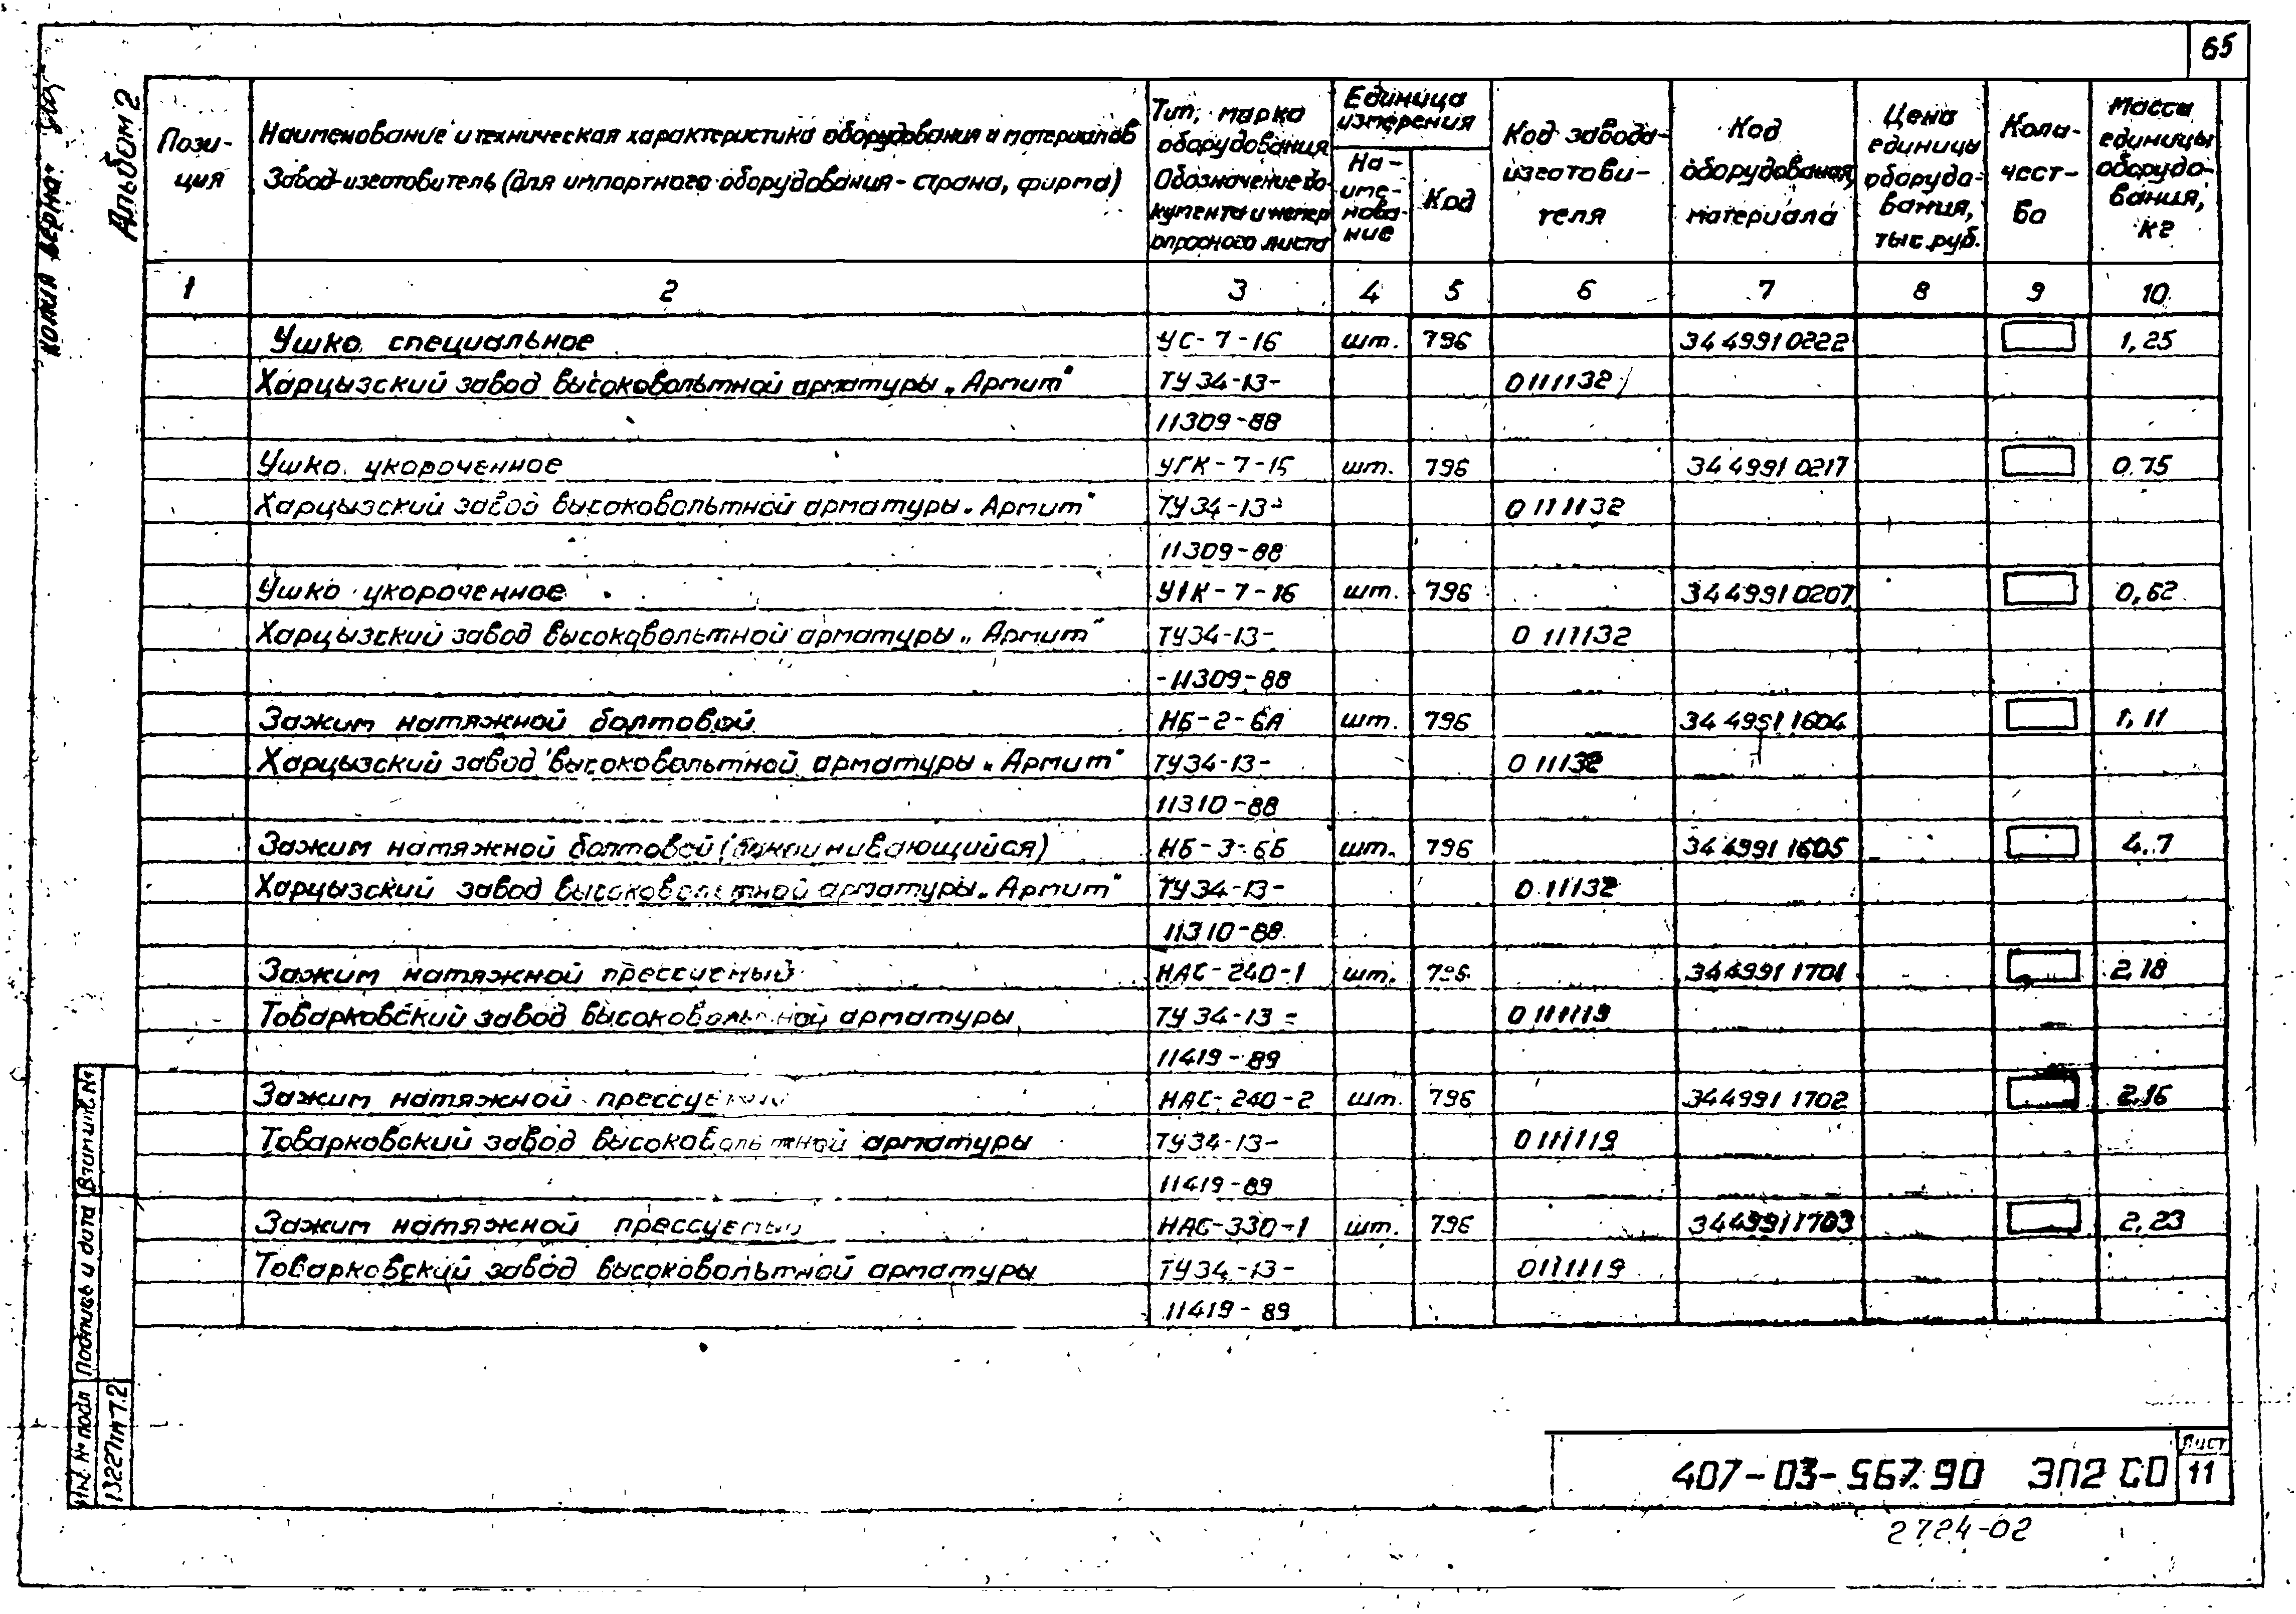 65
Копия верна:
Альбом 2
Пози-
ция
Наименование и техническая характеристика оборудования и материалов
Завод-изготовитель (для импортного оборудования - страна, фирма)
Тип, марка
оборудования
Обозначение до-
кумента и номер
опросного листа
Единица
измерения
На-
име-
нова-
ние
Код
Код завода-
изготови-
теля
Код
оборудования,
материала
Цена
единицы
оборудо-
вания,
тыс.руб.
Коли-
чест-
во
Масса
единицы
оборудо-
вания,
кг
1 2 3 4 5 6 7 8 9 10
Ушко специальное УС-7-16 шт. 796 34 4991 0222 1,25
Харцызский завод высоковольтной арматуры „Армит" ТУ34-13- 0111132
11309-88
Ушко укороченное У2К-7-16 шт. 796 34 4991 0217 0.75
Харцызский завод высоковольтной арматуры „Армит" ТУ34-13- 0111132
11309-88
Ушко укороченное У1К-7-16 шт. 796 34 4991 0207 0,62
Харцызский завод высоковольтной арматуры „Армит" ТУ34-13- 0111132
-11309-88
Зажим натяжной болтовой НБ-2-6А шт. 796 34 4991 1604 1,11
Харцызский завод высоковольтной арматуры „Армит" ТУ34-13- 011132
11310-88
Зажим натяжной болтовой (заклинивающийся) НБ-3-6Б шт. 796 34 4991 1605 4.7
Харцызский завод высоковольтной арматуры „Армит" ТУ34-13- 011132
11310-88
Зажим натяжной прессуемый НАС-240-1 шт. 796 34 4991 1701 2,18
Товарковский завод высоковольтной арматуры ТУ34-13- 0111119
11419-89
Зажим натяжной прессуемый НАС-240-2 шт. 796 34 4991 1702 2,16
Товарковский завод высоковольтной арматуры ТУ34-13- 0111119
11419-89
Зажим натяжной прессуемый НАС-330-1 шт. 796 34 4991 1703 2,23
Товарковский завод высоковольтной арматуры ТУ34-13- 0111119
11419-89
Взам инв. №
Подпись и дата
Инв. № подл
13227тм т.2
407-03-567.90 ЭП2 СО
Лист
11
2724-02